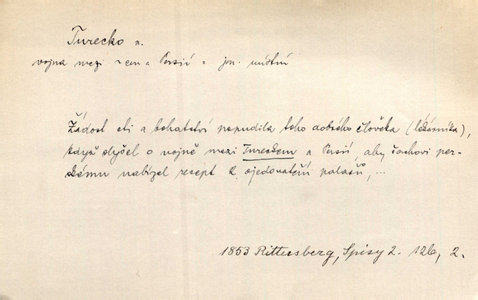 Turecko n.
vojna mezi T-em a Persií v jon. místní
Žádost cti a bohatství popudila toho dobrého člověka (lékárníka),
když slyšel o vojně mezi Tureckem a Persií, aby šachovi per-
skému nabízel recept k ojedovatění palašů, ...
1853 Rittersberg, Spisy 2. 126, 2.